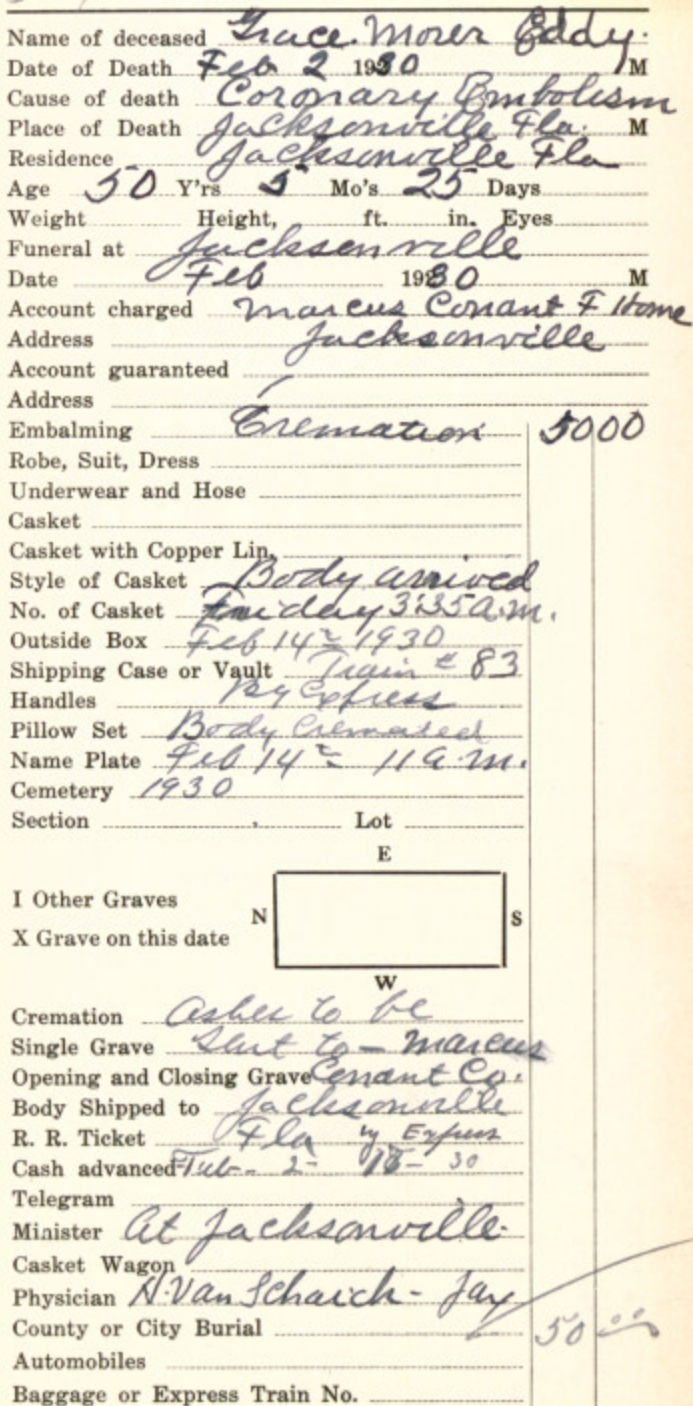 Name of deceased Grace Morer Eddy.
Date of Death Feb 2 1930 M
Cause of death Coronary Embolism
Place of Death Jacksonville Fla. M
Residence Jacksonville Fla
Age 50 Y'rs 5 Mo's 25 Days
Weight Height, ft. in. Eyes
Funeral at Jacksonville
Date Feb 1930 M
Account charged Marcus Conant F Home
Address Jacksonville
Account guaranteed
Address
Embalming Cremation 50 00
Robe, Suit, Dress
Underwear and Hose
Casket
Casket with Copper Lin.
Style of Casket Body arrived
No. of Casket Friday 3:35 a.m.
Outside Box Feb 14 1930
Shipping Case or Vault Train # 83
Handles By Express
Pillow Set Body Cremated
Name Plate Feb 14 11 a.m.
Cemetery 1930
Section Lot
E
I Other Graves
N S
X Grave on this date
W
Cremation Ashes to be
Single Grave Sent to - Marcus
Opening and Closing Grave Conant Co.
Body Shipped to Jacksonville
R. R. Ticket Fla by Express
Cash advanced 2- 30
Telegram
Minister At Jacksonville
Casket Wagon
Physician N. Van Schaick - Jax
County or City Burial 50 00
Automobiles
Baggage or Express Train No.